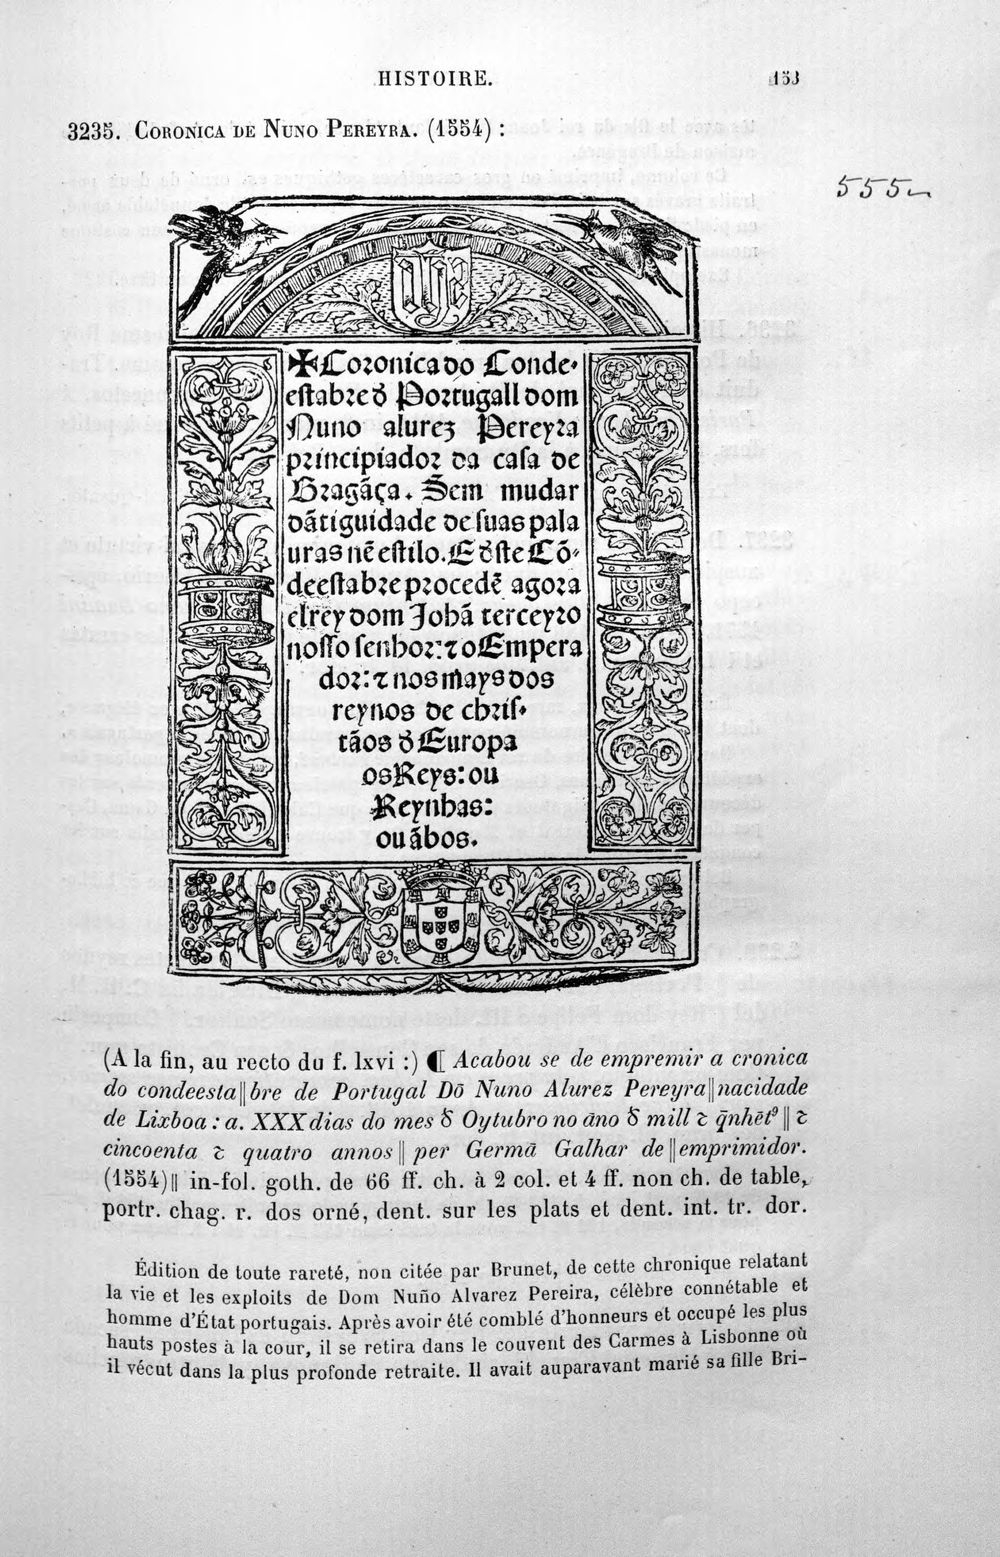 HISTOIRE. 153
3235. CORONICA DE NUNO PEREYRA. (1554) :
555
✠Coronica do Conde-
estabre đ Portugall dom
Nuno alurez Pereyra
principiador da casa de
Bragãça. Sem mudar
dãtiguidade de suas pala
uras nẽ estilo. E đste Cõ-
deestabre procedẽ agora
elrey dom Johã terceyro
nosso senhor: ⁊ o Empera
dor: ⁊ nos mays dos
reynos de chris-
tãos đ Europa
os Reys: ou
Reynhas:
ou ãbos.
(A la fin, au recto du f. lxvi :) ⁋ Acabou se de empremir a cronica
do condeesta||bre de Portugal Dõ Nuno Alurez Pereyra||nacidade
de Lixboa : a. XXX dias do mes đ Oytubro no ãno đ mill ⁊ q̃nhẽtꝰ || ⁊
cincoenta ⁊ quatro annos || per Germã Galhar de||emprimidor.
(1554)|| in-fol. goth. de 66 ff. ch. à 2 col. et 4 ff. non ch. de table,
portr. chag. r. dos orné, dent. sur les plats et dent. int. tr. dor.
Édition de toute rareté, non citée par Brunet, de cette chronique relatant
la vie et les exploits de Dom Nuño Alvarez Pereira, célèbre connétable et
homme d'État portugais. Après avoir été comblé d'honneurs et occupé les plus
hauts postes à la cour, il se retira dans le couvent des Carmes à Lisbonne où
il vécut dans la plus profonde retraite. Il avait auparavant marié sa fille Bri-